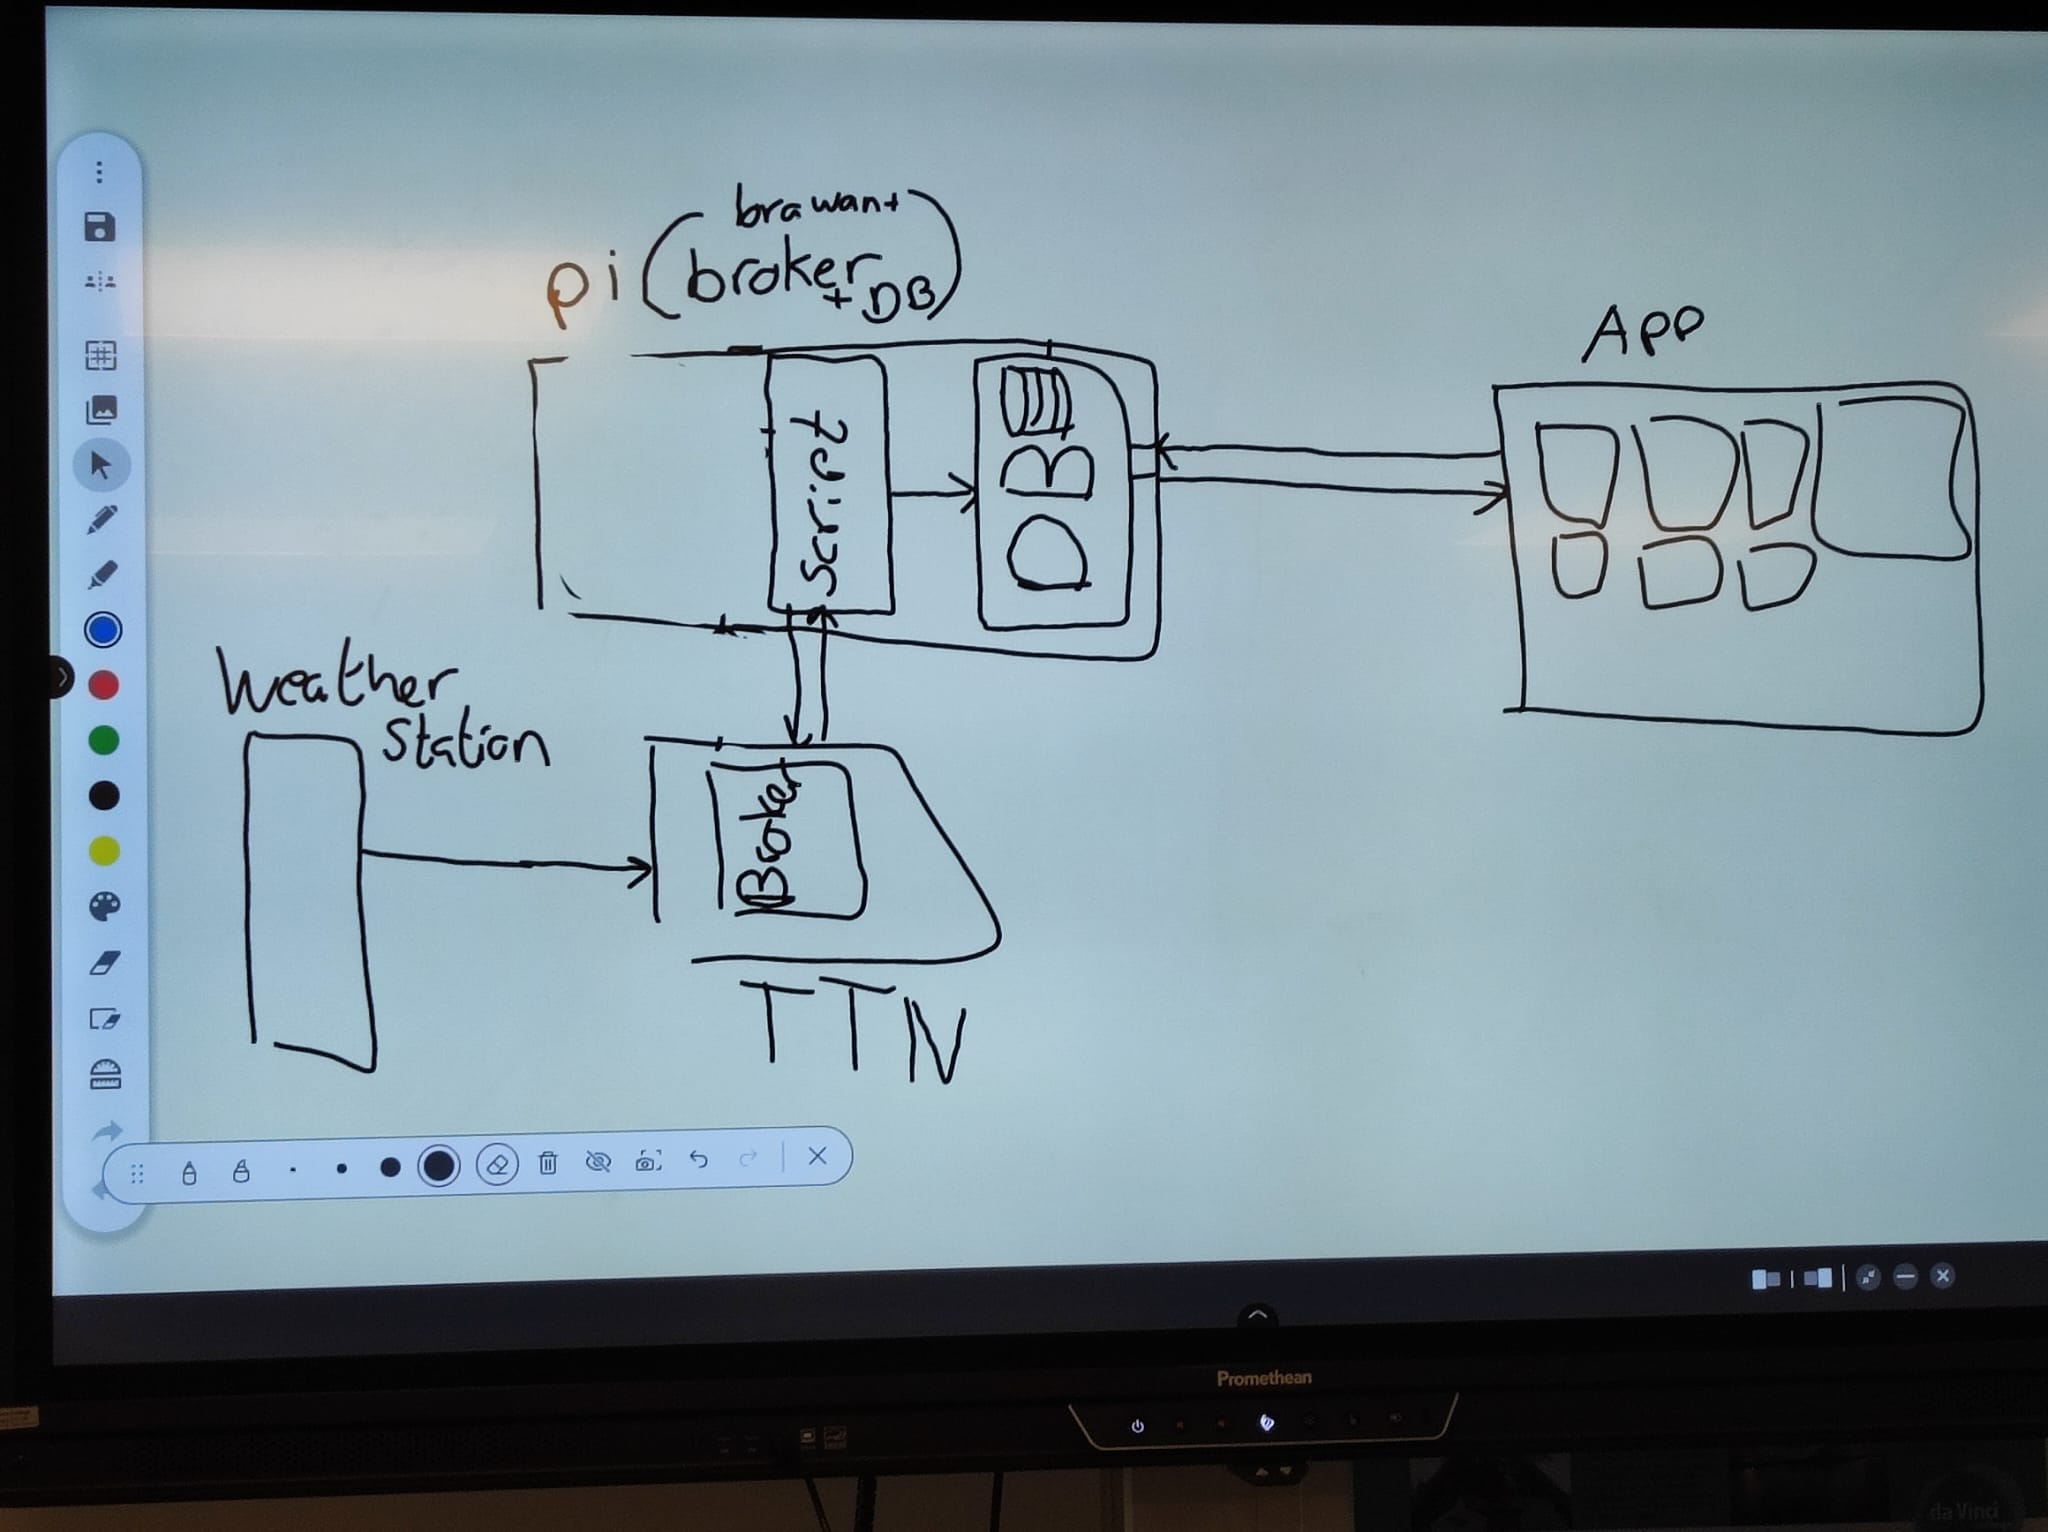 brawant
pi (broker
+ DB)
App
Script
DB
Weather
Station
Broker
TTN
Promethean
da Vinci